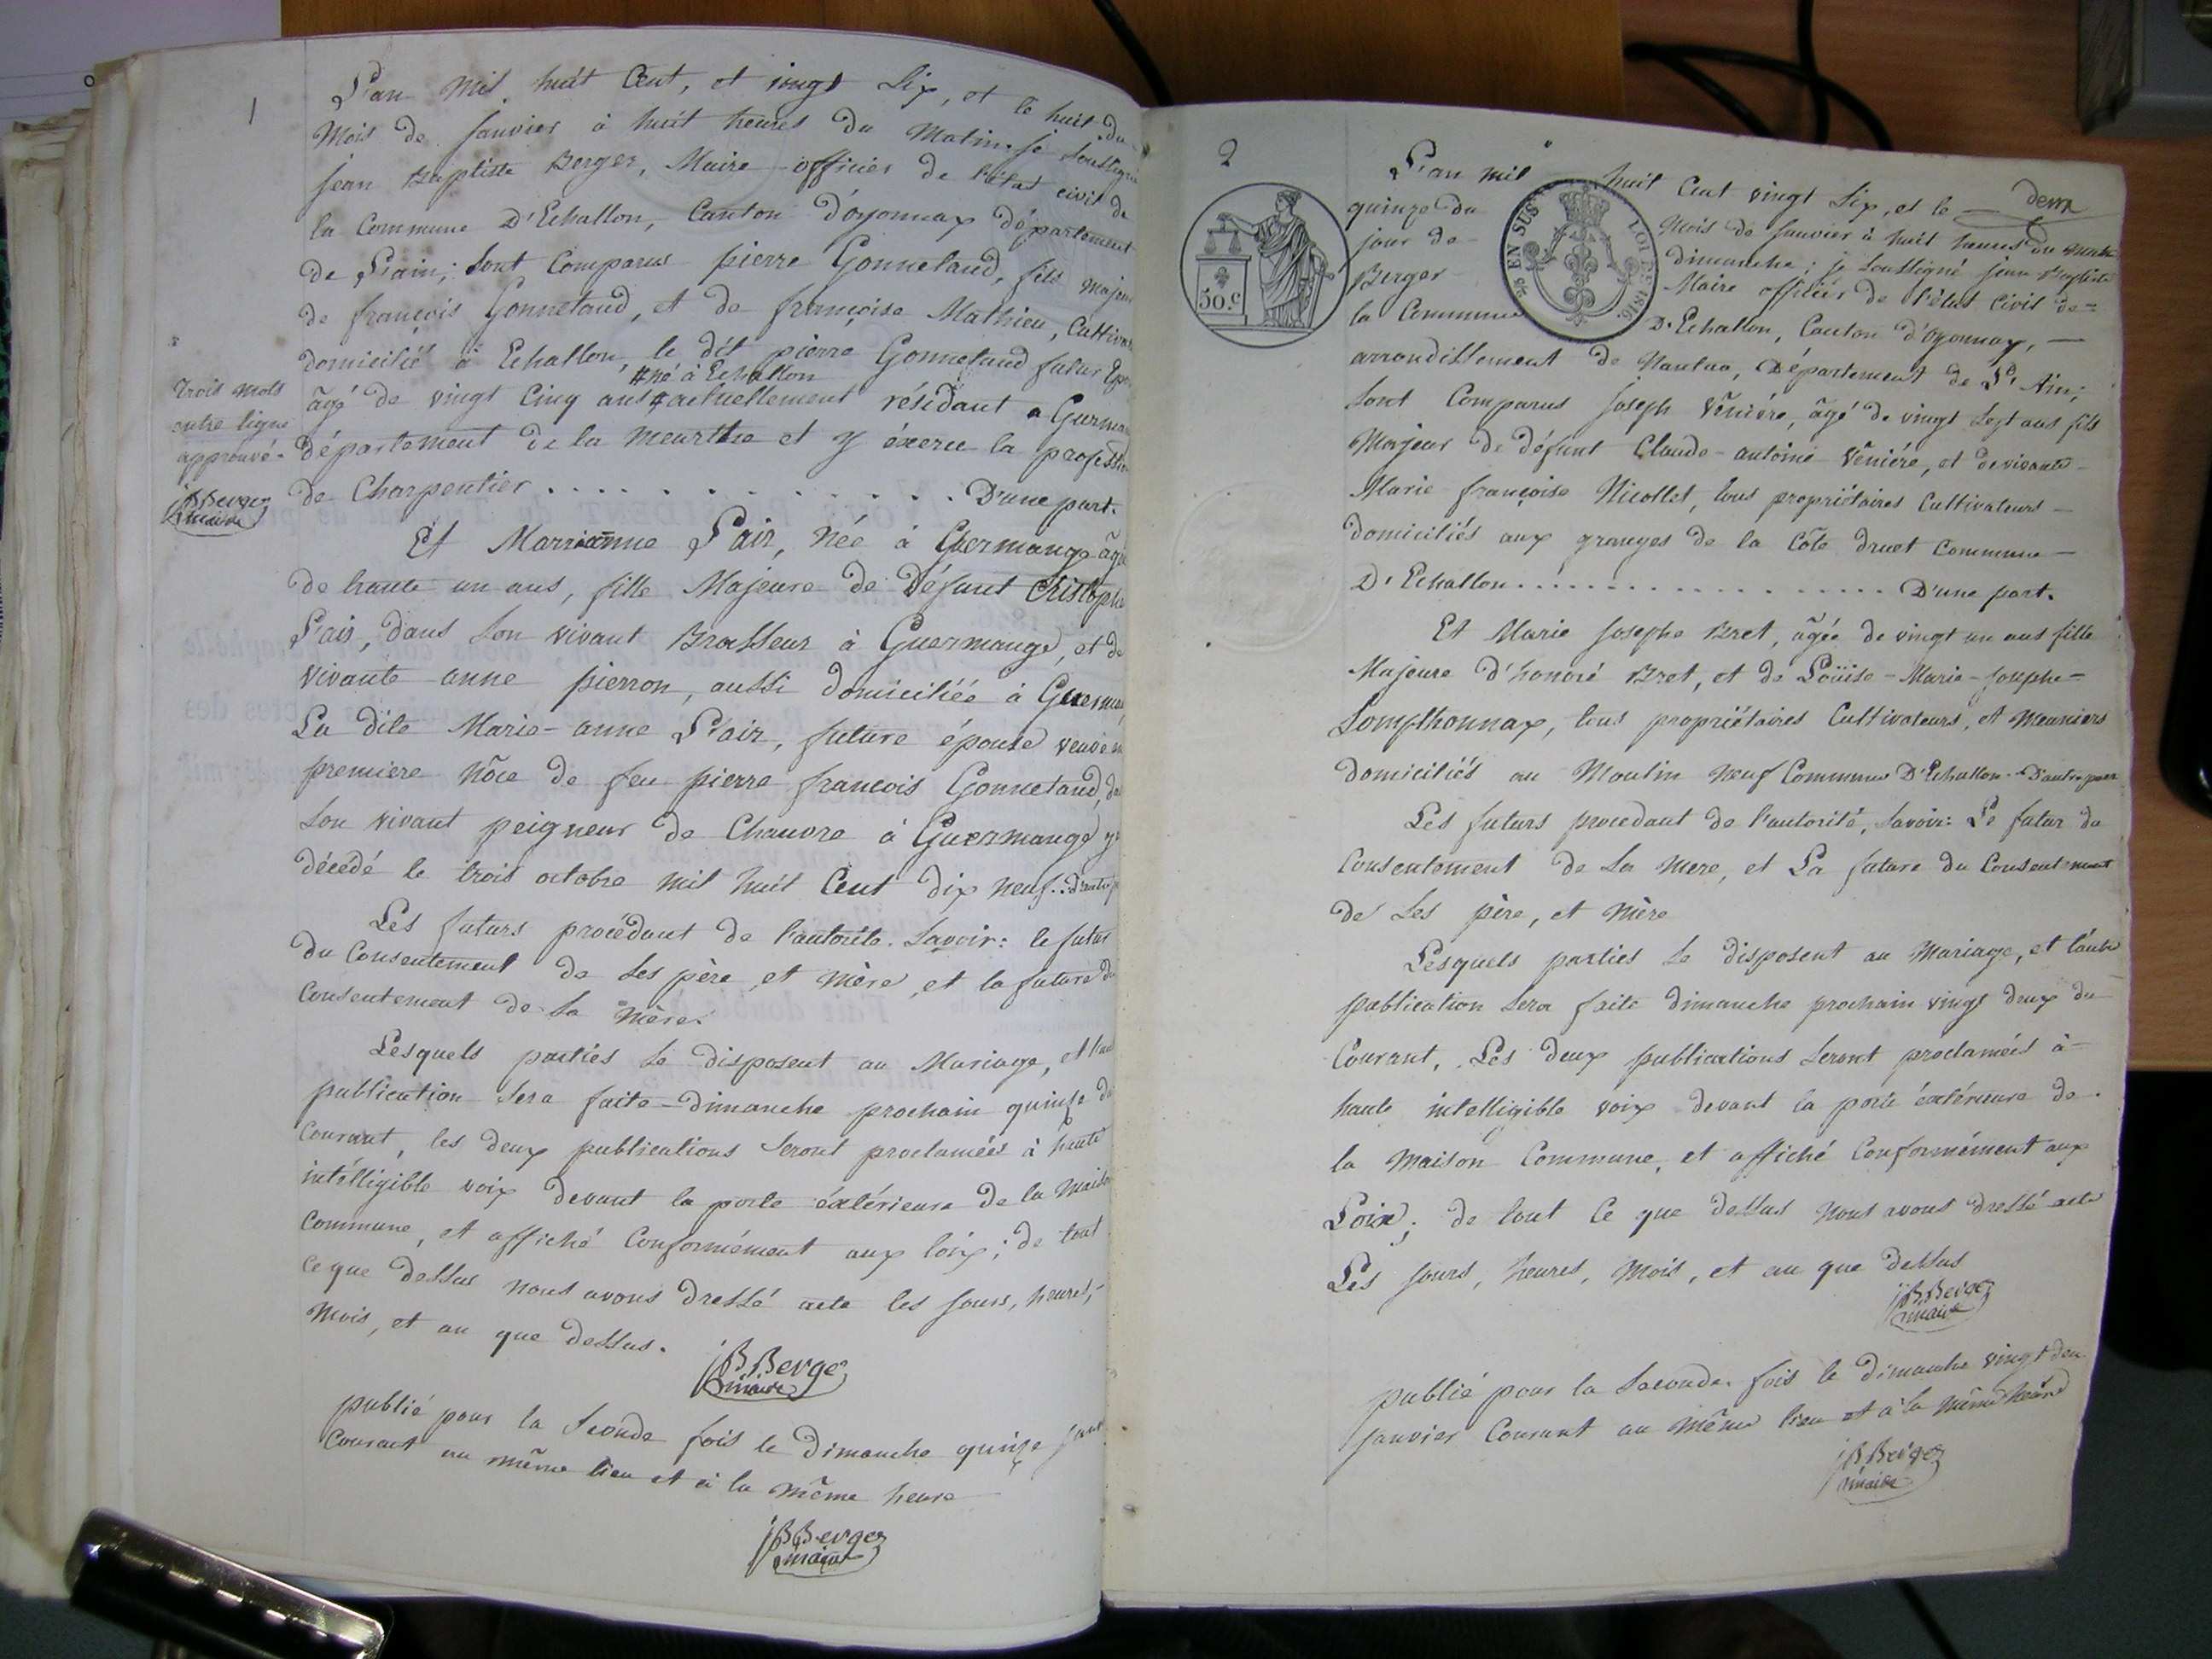 1
L'an mil huit Cent, et vingt Six, et le huit du
Mois de Janvier à huit heures du Matin. je Soussigné
jean Baptiste Berger, Maire officier de l'état civil de
la Commune D'Echallon, Canton d'oyonnax département
de L'ain; Sont Comparus pierre Gonnetand, fils majeur
de françois Gonnetand, et de françoise Mathieu, Cultivat
domicilié à Echallon, le dit pierre Gonnetand futur Epou
#né à Echallon
âgé de vingt Cinq ans# actuellement résidant a Guerman
département de la meurthe et y éxerce la profession
de Charpentier . . . . . . . . . . . . . . D'une part.
trois mots
entre ligne
approuvé.
JB Berger
maire
Et Marrianne L'air, née à Guermange âgée
de trante un ans, fille Majeure de Défunt Christophe
L'air, dans Son vivant Brasseur à Guermange, et de
vivante anne pierron, aussi domiciliée à Guerman
La dite Marie-anne L'air, future épouse veuve en
premiere Nôce de feu pierre françois Gonnetand, da
Son vivant peigneur de Chanvre à Guermange y
décédé le trois octobre mil huit Cent dix neuf..D'autre p
Les futurs procédant de l'autorité. Savoir: le futur
du Consentement de Ses père, et mère, et la future du
Consentement de Sa mère.
Lesquels parties Se disposent au Mariage, et l'autre
publication Sera faite-dimanche prochain quinze du
Courant, les deux publications Seront proclamées à haute
intélligible voix devant la porte éxtérieure de la Maison
Commune, et affiché Conformément aux loix; de tout
Ce que dessus nous avons dressé acte les Jours, heures,-
Mois, et an que dessus.
JB Berger
maire
publié pour la Seconde fois le dimanche quinze Janv
Courant au même lieu et à la même heure
JB Berger
maire
2
L'an mil huit Cent vingt Six, et le
quinze du Mois de Janvier à huit heures du Matin
jour de dimanche; je Soussigné jean Baptiste
Berger Maire officier de l'état Civil de=
la Commune D'Echallon, Canton d'oyonnax, —
50.c
EN SUS
LOI DE 1816.
arrondissement de Nantua, Département de L'Ain;
Sont Comparus Joseph Vênière, âgé de vingt Sept ans fils
Majeur de défunt Claude-antoine Vênière, et de vivante-
Marie françoise Nicollet, tous propriétaires Cultivateurs —
domiciliés aux granges de la Côte druet Commune —
D'Echallon . . . . . . . . . . . . . . . . . D'une part.
Et Marie Josephe Bret, âgée de vingt un ans fille
Majeure d'honoré Bret, et de Loüise-Marie-Josephe=
Sompthonnax, tous propriétaires Cultivateurs, et meuniers
domiciliés au Moulin neuf Commune D'Echallon.. D'autre part
Les futurs procedant de l'autorité, Savoir: Le futur du
Consentement de Sa mere, et La future du Consentement
de Ses père, et mère
Lesquels parties Se disposent au Mariage, et l'autre
publication Sera faite dimanche prochain vingt deux du
Courant, Les deux publications Seront proclamées à-
haute intelligible voix devant la porte éxtérieure de.
la Maison Commune, et affiché Conformément aux
Loix; de tout Ce que dessus Nous avons dressé acte
Les Jours, heures, Mois, et an que dessus
JB Berger
maire
publié pour la Seconde. fois le dimanche vingt deux
Janvier Courant au même lieu et à la même heure
JB Berger
maire